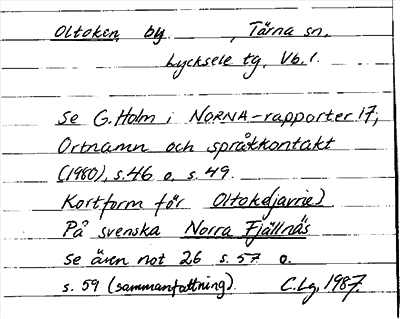 Oltoken by , Tärna sn,
Lycksele tg, Vb.l.
Se G. Holm i NORNA-rapporter 17,
Ortnamn och språkkontakt
(1980), s. 46 o. s. 49.
Kortform för Oltoke(javrie)
På svenska Norra Fjällnäs
Se även not 26 s. 57 o.
s. 59 (sammanfattning). C.Lg, 1987.